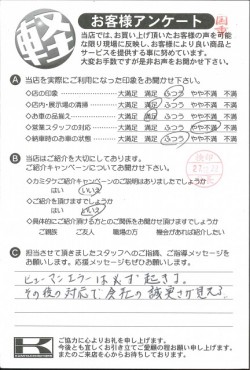 軽
お客様アンケート
当店では、お買い上げ頂いたお客様の声を可能
な限り現場に反映し、お客様により良い商品と
サービスを提供する事に努めています。
大変お手数ですが是非お声をお聞かせ下さい。
A 当店を実際にご利用になった印象をお聞かせ下さい。
◇店の印象 大満足 満足 ふつう やや不満 不満
◇店内・展示場の清掃 大満足 満足 ふつう やや不満 不満
◇お車の品揃え 大満足 満足 ふつう やや不満 不満
◇営業スタッフの対応 大満足 満足 ふつう やや不満 不満
◇納車時のお車の状態 大満足 満足 ふつう やや不満 不満
B 当店はご紹介を大切にしております。
ご紹介キャンペーンについてお聞かせ下さい。
◇カミタケご紹介キャンペーンのご説明はありましたでしょうか
はい いいえ
◇ご紹介を頂けますでしょうか
はい いいえ
◇具体的にご紹介頂ける方とのご関係をお聞かせ頂けますでしょうか
ご親族 ご友人 職場の方 機会があれば紹介したい
C 担当させて頂きましたスタッフへのご指摘、ご指導メッセージを
お願いします。応援メッセージもぜひお願いします。
ヒューマンエラーは必ず起きる。
その後の対応で会社の誠実さが見える。
K
ご協力に心よりお礼を申し上げます。
今後とも宜しくお引き立てご愛顧の程お願い申し上げます。
またのご来店を心からお待ちしております。